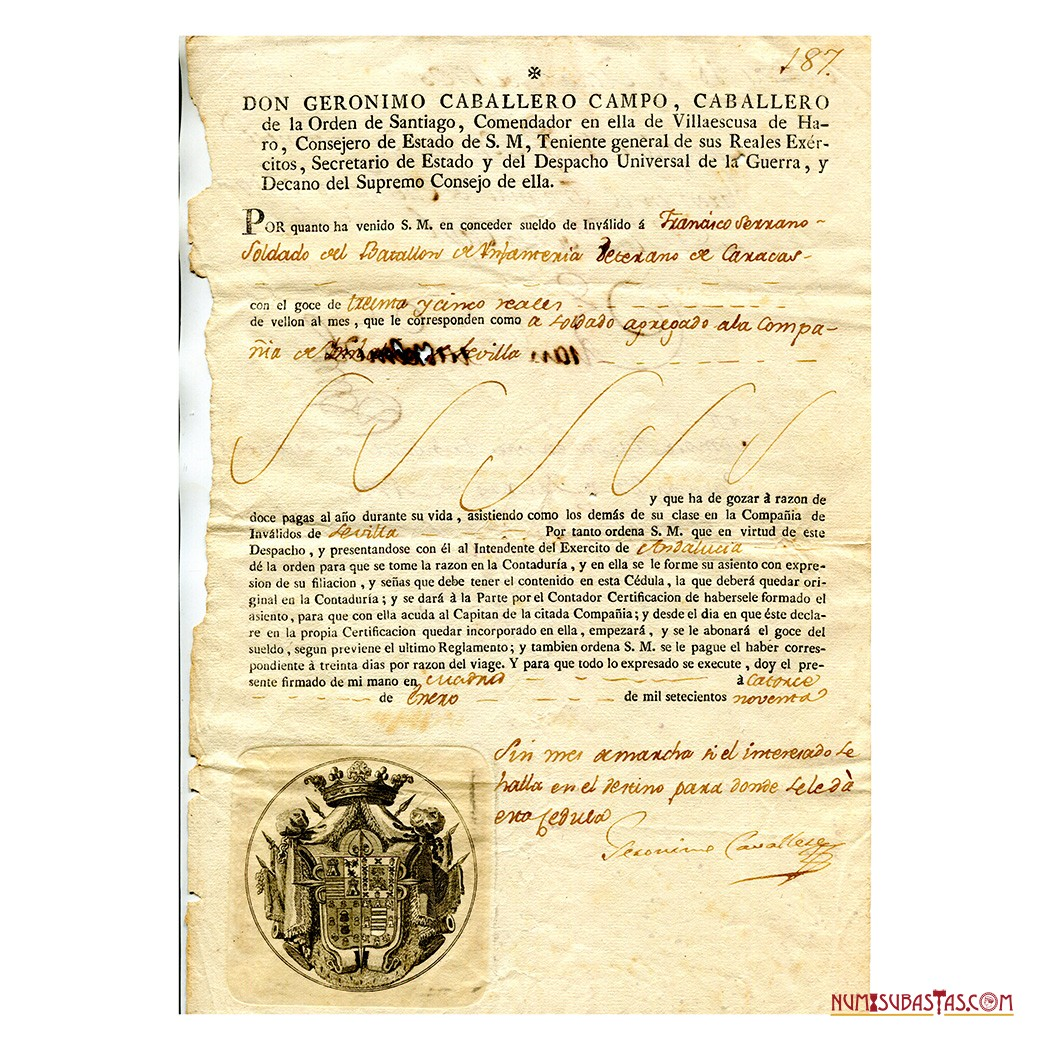 187.
✠
DON GERONIMO CABALLERO CAMPO, CABALLERO
de la Orden de Santiago, Comendador en ella de Villaescusa de Ha-
ro, Consejero de Estado de S. M, Teniente general de sus Reales Exér-
citos, Secretario de Estado y del Despacho Universal de la Guerra, y
Decano del Supremo Consejo de ella.
POR quanto ha venido S. M. en conceder sueldo de Inválido á Francisco Serrano
Soldado del Batallon de Ynfanteria Veterano de Caracas
con el goce de treinta y cinco reales
de vellon al mes, que le corresponden como a soldado agregado ala Compa-
ñia de Sevilla
y que ha de gozar à razon de
doce pagas al año durante su vida, asistiendo como los demás de su clase en la Compañia de
Inválidos de Sevilla Por tanto ordena S. M. que en virtud de este
Despacho, y presentandose con él al Intendente del Exercito de Andalucia
dé la orden para que se tome la razon en la Contaduría, y en ella se le forme su asiento con expre-
sion de su filiacion, y señas que debe tener el contenido en esta Cédula, la que deberá quedar ori-
ginal en la Contaduría; y se dará à la Parte por el Contador Certificacion de habersele formado el
asiento, para que con ella acuda al Capitan de la citada Compañia; y desde el dia en que éste decla-
re en la propia Certificacion quedar incorporado en ella, empezará, y se le abonará el goce del
sueldo, segun previene el ultimo Reglamento; y tambien ordena S. M. se le pague el haber corres-
pondiente à treinta dias por razon del viage. Y para que todo lo expresado se execute, doy el pre-
sente firmado de mi mano en Madrid à Catorce
de Enero de mil setecientos noventa
Sin mes de marcha si el interesado se
halla en el destino para donde se le dà
esta Cedula
Geronimo Cavallero
NUMISUBASTAS.COM